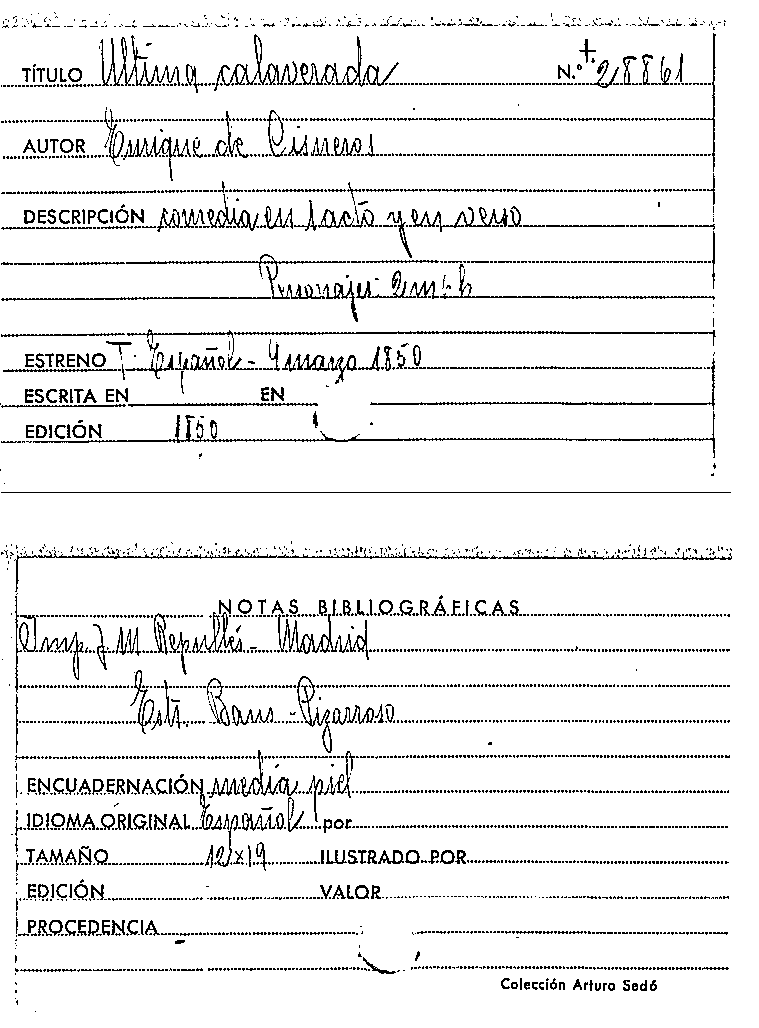 TÍTULO Ultima calaverada N.º t. 28861
AUTOR Enrique de Cisneros
DESCRIPCIÓN comedia en 1 acto y en verso
Personajes: 2m 5h
ESTRENO T. Español - 4 marzo 1850
ESCRITA EN EN
EDICIÓN 1850
NOTAS BIBLIOGRÁFICAS
Imp. J. M Repullés - Madrid
Estr. Baus - Pizarroso
ENCUADERNACIÓN media piel
IDIOMA ORIGINAL Español por
TAMAÑO 12x19 ILUSTRADO POR
EDICIÓN VALOR
PROCEDENCIA
Colección Arturo Sedó